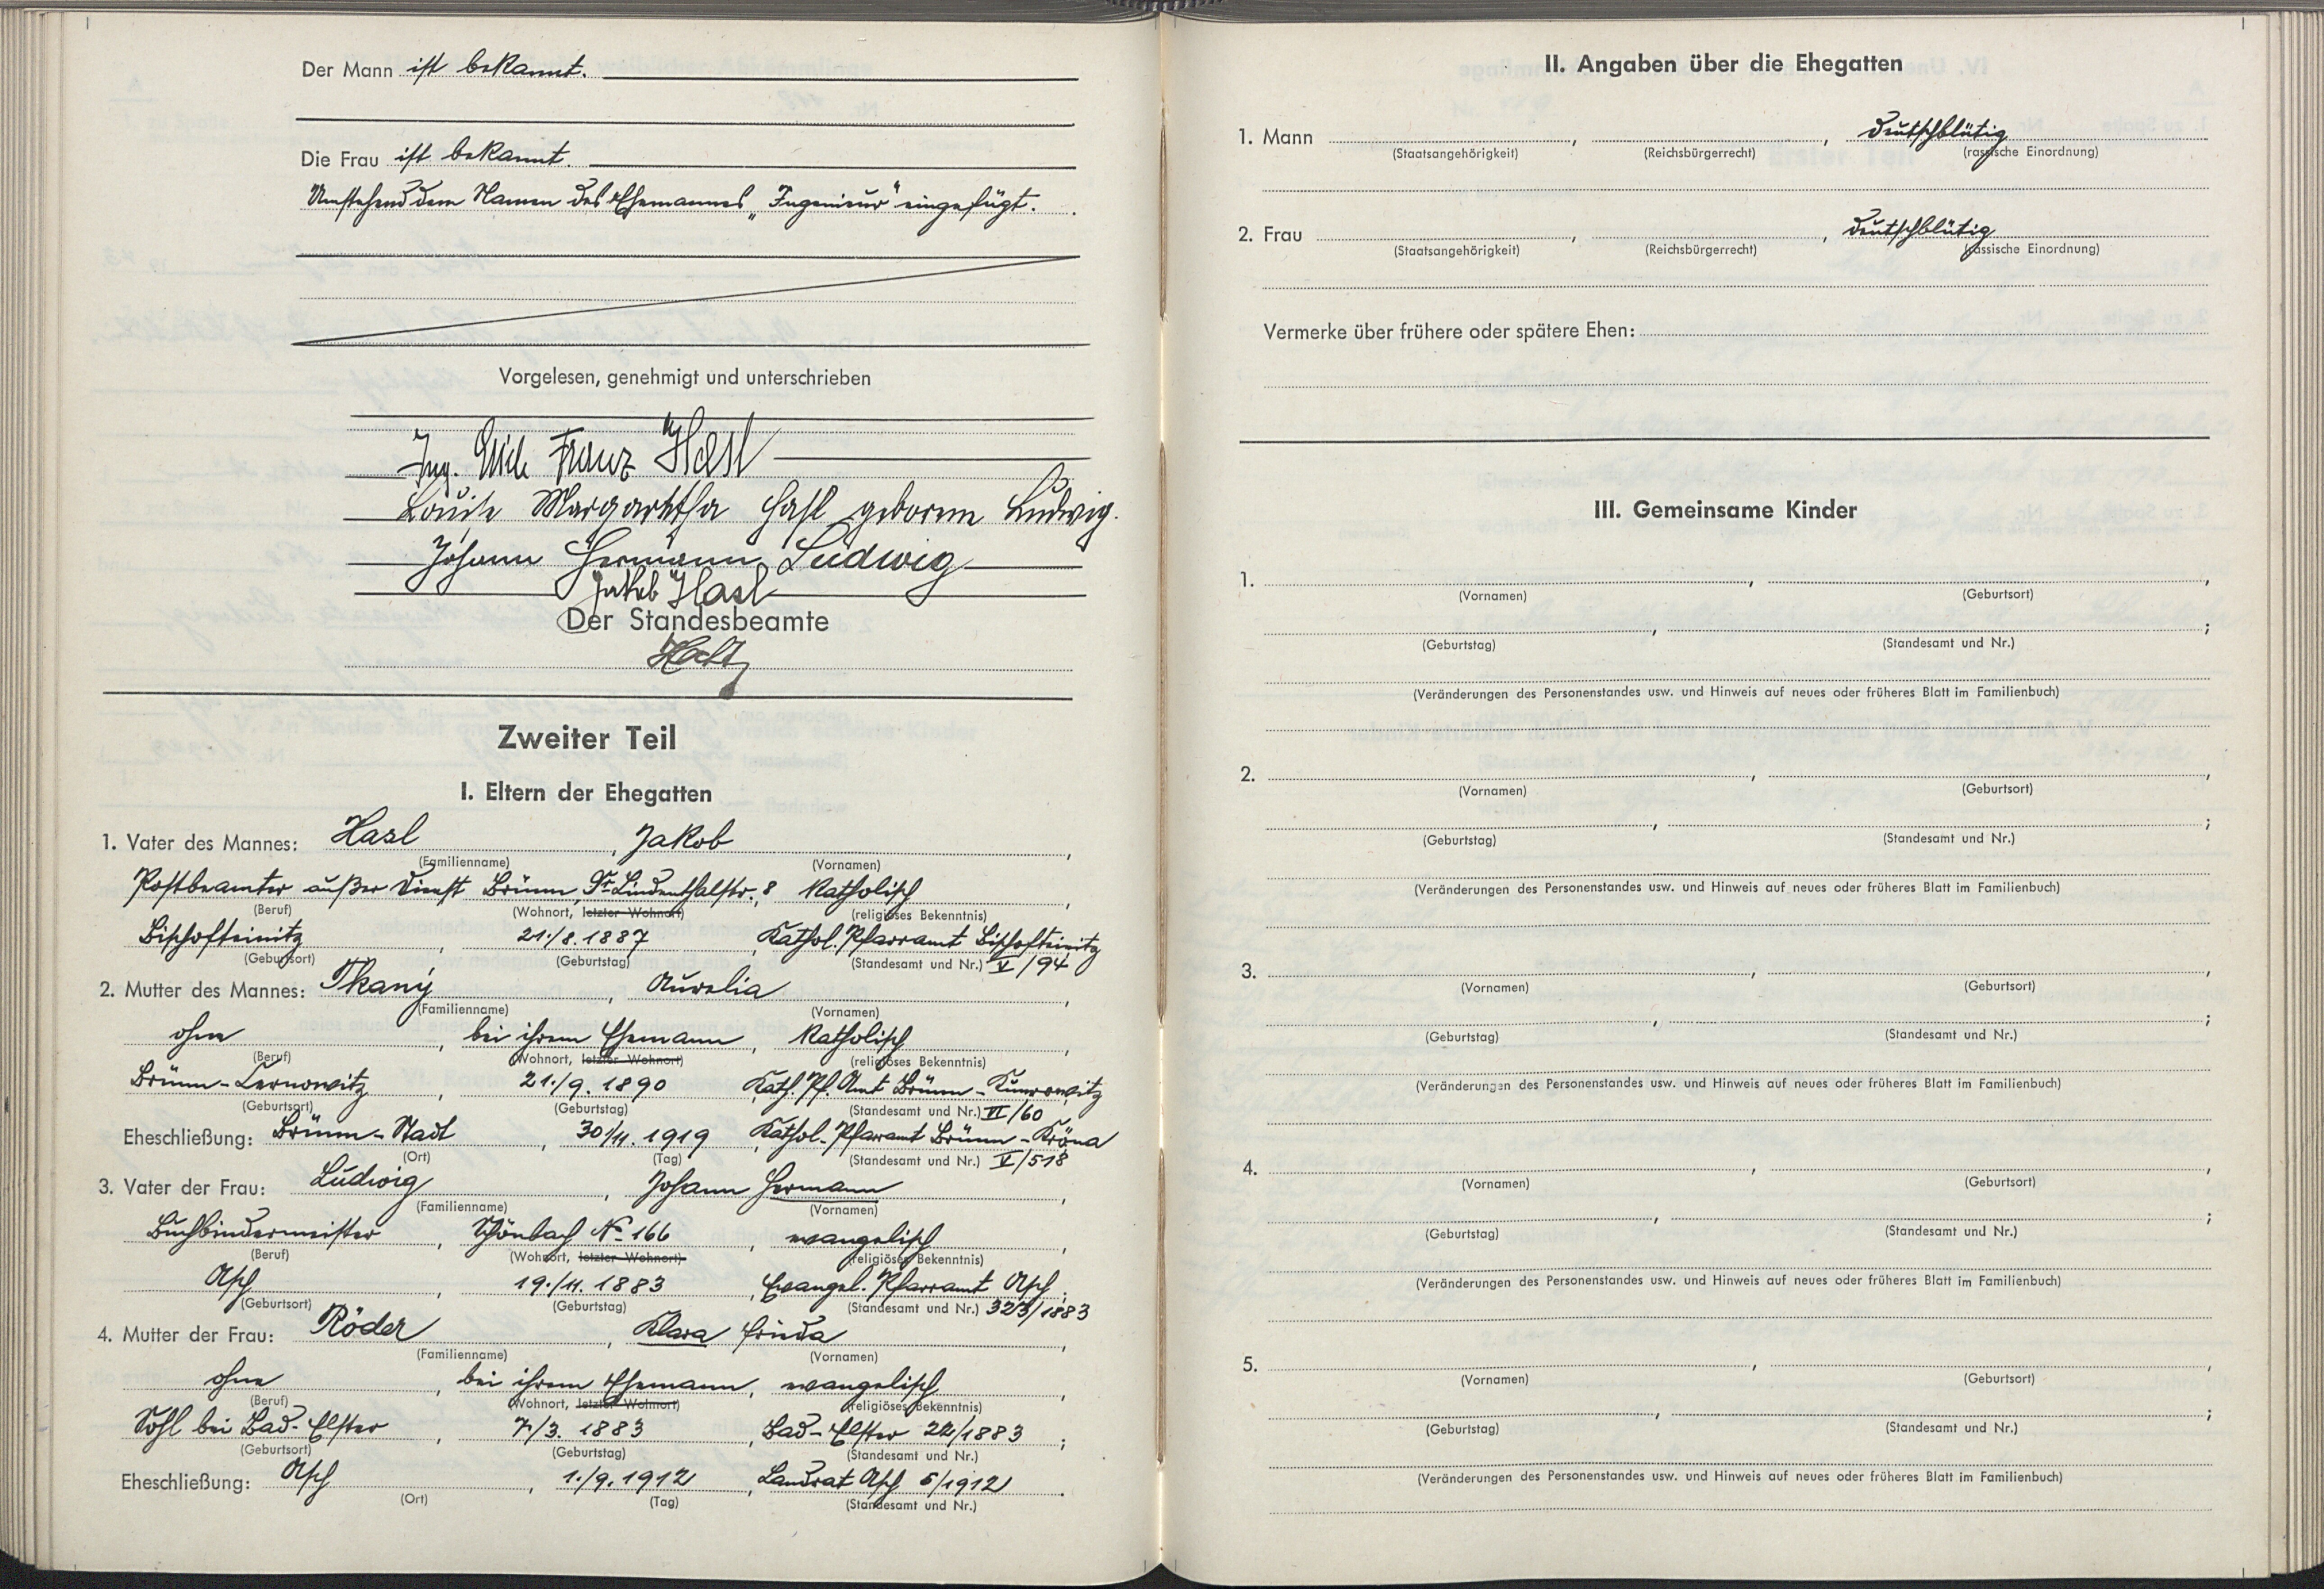 Der Mann ist bekannt.
Die Frau ist bekannt.
Umstehend dem Namen des Ehemannes „Ingenieur" eingefügt.
Vorgelesen, genehmigt und unterschrieben
Ing. Erich Franz Hasl
Louise Margaretha Hasl geborene Ludwig.
Johann Hermann Ludwig
Jakob Hasl
Der Standesbeamte
Zweiter Teil
I. Eltern der Ehegatten
1. Vater des Mannes: Hasl, Jakob,
(Familienname) (Vornamen)
Postbeamter außer Dienst Brünn, Gr. Lindenthalstr. 8 Katholisch,
(Beruf) (Wohnort, letzter Wohnort) (religiöses Bekenntnis)
Bischofteinitz, 21./8. 1887, Kathol. Pfarramt Bischofteinitz
(Geburtsort) (Geburtstag) (Standesamt und Nr.) V/94
2. Mutter des Mannes: Tkaný, Aurelia,
(Familienname) (Vornamen)
ohne, bei ihrem Ehemann, Katholisch,
(Beruf) (Wohnort, letzter Wohnort) (religiöses Bekenntnis)
Brünn-Czernowitz, 21./9. 1890 Kath. Pf. Amt Brünn-Kumrowitz
(Geburtsort) (Geburtstag) (Standesamt und Nr.) VI/60
Eheschließung: Brünn-Stadt, 30./11. 1919, Kathol. Pfarramt Brünn-Kröna
(Ort) (Tag) (Standesamt und Nr.) V/518
3. Vater der Frau: Ludwig, Johann Hermann,
(Familienname) (Vornamen)
Buchbindermeister, Schönbach No. 166, evangelisch,
(Beruf) (Wohnort, letzter Wohnort) (religiöses Bekenntnis)
Asch, 19./11. 1883, Evangel. Pfarramt Asch;
(Geburtsort) (Geburtstag) (Standesamt und Nr.) 323/1883
4. Mutter der Frau: Röder, Klara Frieda,
(Familienname) (Vornamen)
ohne, bei ihrem Ehemann, evangelisch,
(Beruf) (Wohnort, letzter Wohnort) (religiöses Bekenntnis)
Sohl bei Bad-Elster, 7./3. 1883, Bad-Elster 22/1883;
(Geburtsort) (Geburtstag) (Standesamt und Nr.)
Eheschließung: Asch, 1./9. 1912, Landrat Asch 5/1912.
(Ort) (Tag) (Standesamt und Nr.)
II. Angaben über die Ehegatten
1. Mann , , deutschblütig
(Staatsangehörigkeit) (Reichsbürgerrecht) (rassische Einordnung)
2. Frau , , deutschblütig
(Staatsangehörigkeit) (Reichsbürgerrecht) (rassische Einordnung)
Vermerke über frühere oder spätere Ehen:
III. Gemeinsame Kinder
1. , ,
(Vornamen) (Geburtsort)
, ;
(Geburtstag) (Standesamt und Nr.)
(Veränderungen des Personenstandes usw. und Hinweis auf neues oder früheres Blatt im Familienbuch)
2. , ,
(Vornamen) (Geburtsort)
, ;
(Geburtstag) (Standesamt und Nr.)
(Veränderungen des Personenstandes usw. und Hinweis auf neues oder früheres Blatt im Familienbuch)
3. , ,
(Vornamen) (Geburtsort)
, ;
(Geburtstag) (Standesamt und Nr.)
(Veränderungen des Personenstandes usw. und Hinweis auf neues oder früheres Blatt im Familienbuch)
4. , ,
(Vornamen) (Geburtsort)
, ;
(Geburtstag) (Standesamt und Nr.)
(Veränderungen des Personenstandes usw. und Hinweis auf neues oder früheres Blatt im Familienbuch)
5. , ,
(Vornamen) (Geburtsort)
, ;
(Geburtstag) (Standesamt und Nr.)
(Veränderungen des Personenstandes usw. und Hinweis auf neues oder früheres Blatt im Familienbuch)